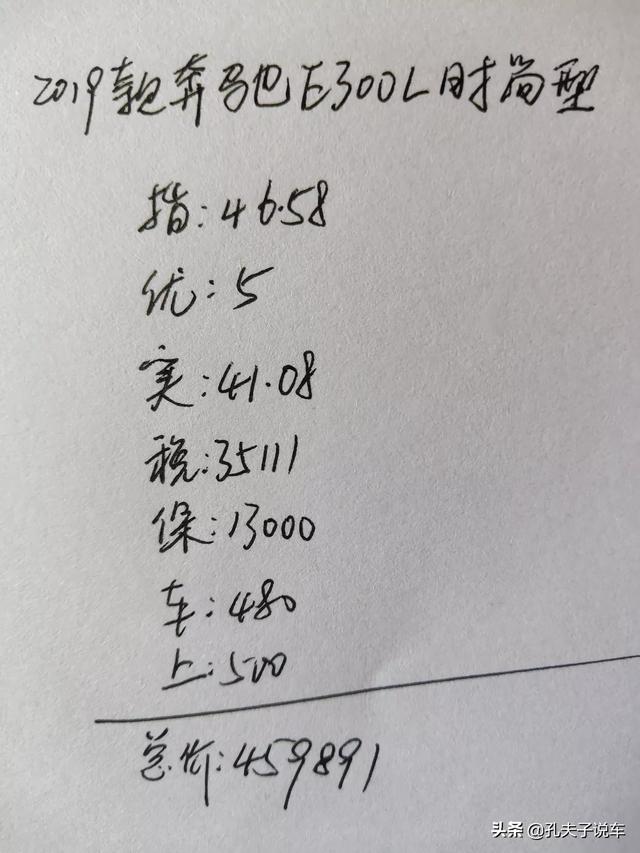 2019款奔驰E300L时尚型
指:46.58
优:5
实:41.08
税:35111
保:13000
车:480
上:500
总价:459891
头条 @孔夫子说车